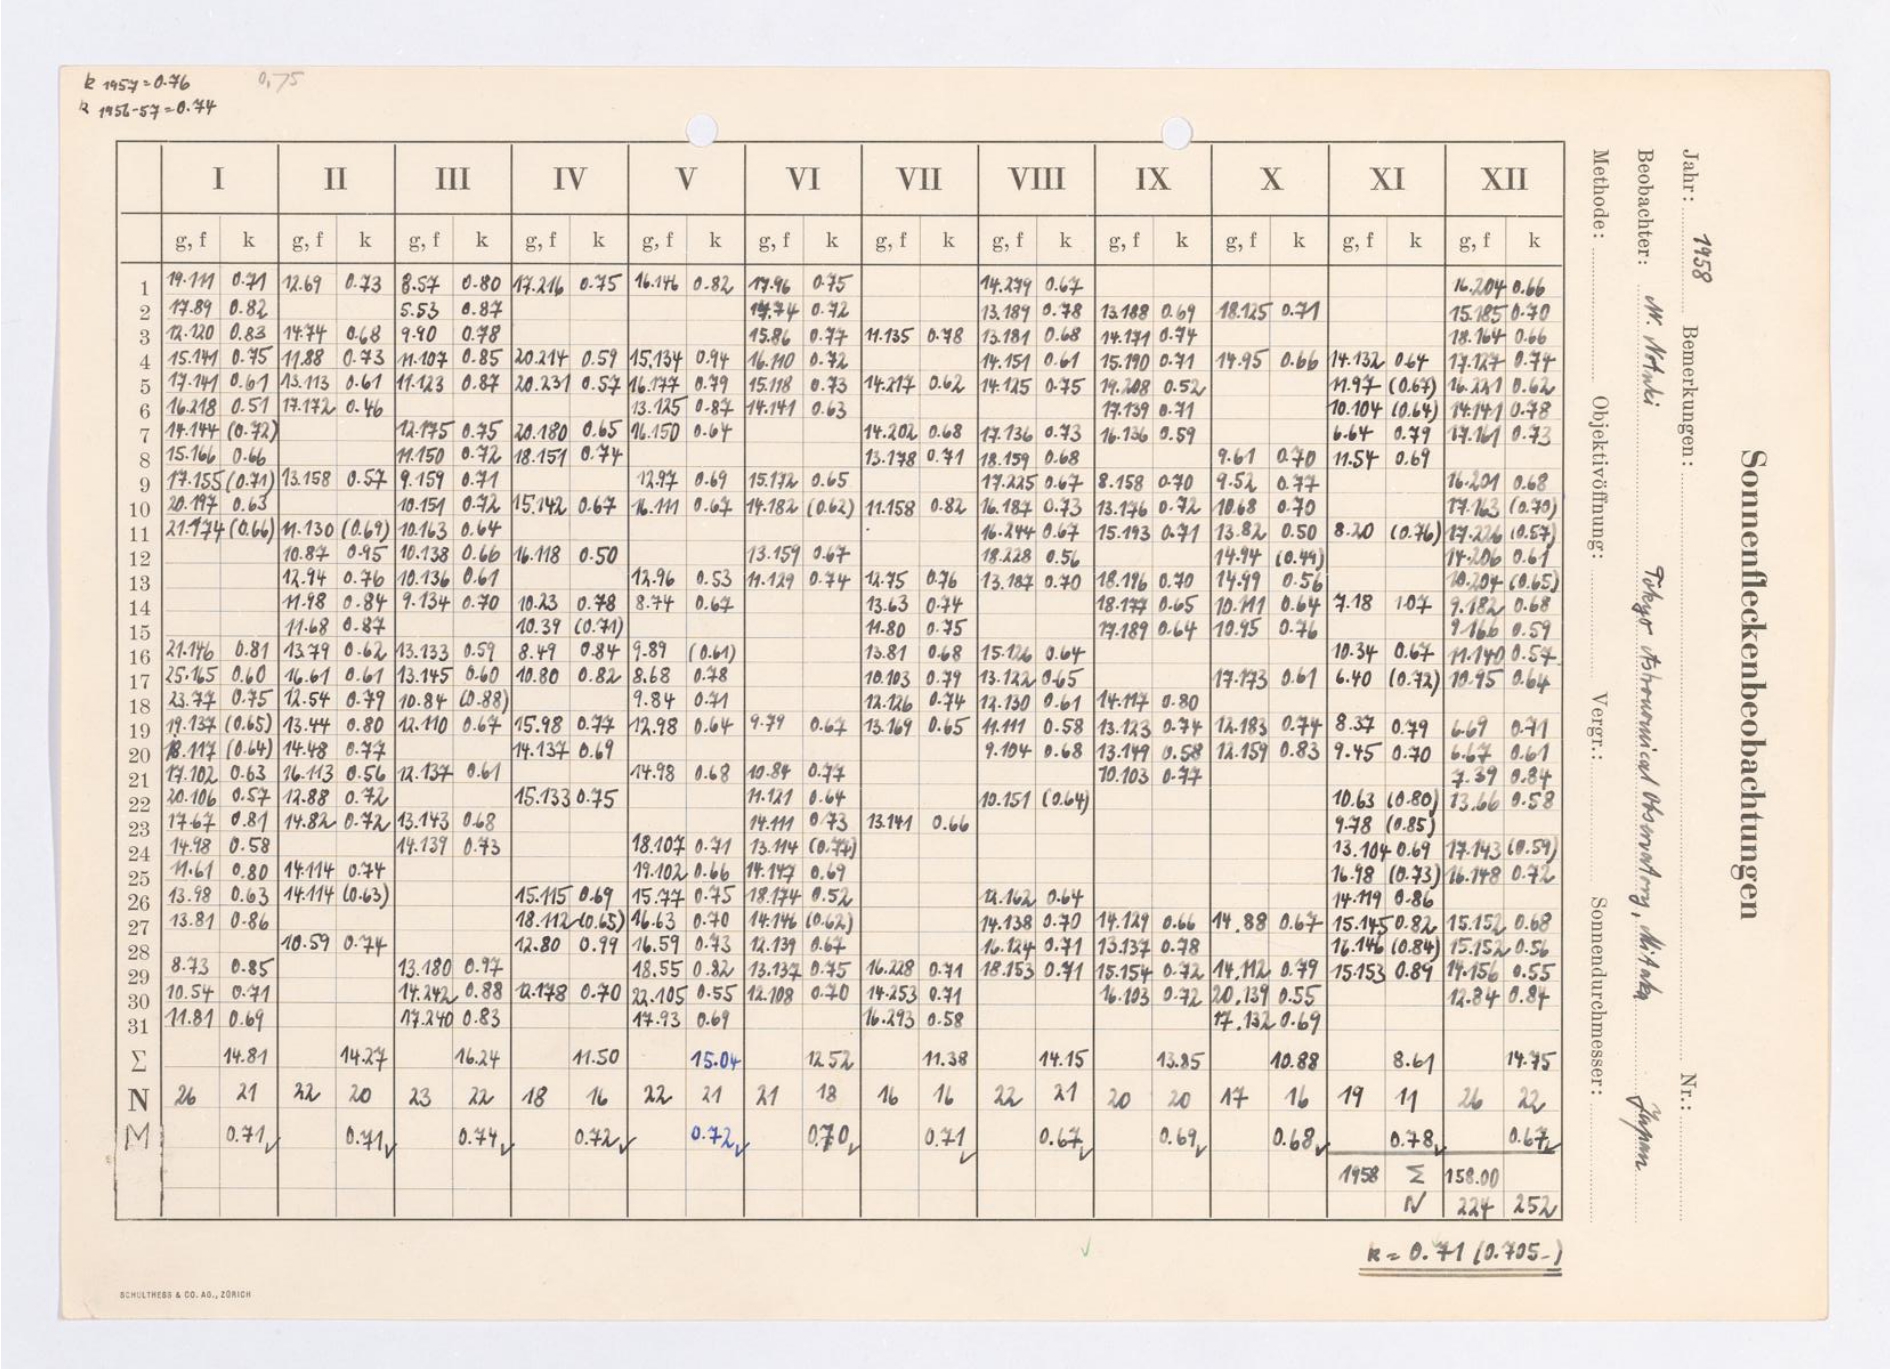 k 1957 = 0.76 0,75
k 1956-57 = 0.74
I II III IV V VI VII VIII IX X XI XII
g, f k g, f k g, f k g, f k g, f k g, f k g, f k g, f k g, f k g, f k g, f k g, f k
1 19.111 0.71 12.69 0.73 8.57 0.80 17.216 0.75 16.146 0.82 17.96 0.75 14.279 0.67 16.204 0.66
2 17.89 0.82 5.53 0.87 0.72 13.189 0.78 13.188 0.69 18.125 0.71 15.185 0.70
3 12.120 0.83 14.74 0.68 9.90 0.78 15.86 0.77 11.135 0.78 13.181 0.68 14.171 0.74 18.164 0.66
4 15.141 0.75 11.88 0.73 11.107 0.85 20.214 0.59 15.134 0.94 16.110 0.72 14.151 0.61 15.190 0.71 14.95 0.66 14.132 0.64 17.127 0.74
5 17.141 0.61 13.113 0.61 11.123 0.87 20.231 0.57 16.177 0.79 15.118 0.73 14.217 0.62 14.125 0.75 19.208 0.52 11.97 (0.67) 16.221 0.62
6 16.218 0.51 17.172 0.46 13.125 0.87 14.141 0.63 17.139 0.71 10.104 (0.64) 14.141 0.78
7 14.144 (0.72) 12.175 0.75 20.180 0.65 16.150 0.64 14.202 0.68 17.136 0.73 16.136 0.59 6.64 0.79 17.161 0.73
8 15.166 0.66 11.150 0.72 18.151 0.74 13.178 0.71 18.159 0.68 9.61 0.70 11.54 0.69
9 17.155 (0.71) 13.158 0.57 9.159 0.71 12.97 0.69 15.172 0.65 17.225 0.67 8.158 0.70 9.52 0.77 16.201 0.68
10 20.197 0.63 10.151 0.72 15.142 0.67 16.111 0.67 14.182 (0.62) 11.158 0.82 16.187 0.73 13.176 0.72 10.68 0.70 17.163 (0.70)
11 21.174 (0.66) 11.130 (0.69) 10.163 0.64 16.244 0.67 15.193 0.71 13.82 0.50 8.20 (0.76) 17.226 (0.57)
12 10.87 0.95 10.138 0.66 16.118 0.50 13.159 0.67 18.228 0.56 14.94 (0.49) 14.206 0.61
13 12.94 0.76 10.136 0.61 12.96 0.53 11.129 0.74 12.75 0.76 13.187 0.70 18.196 0.70 14.99 0.56 10.204 (0.65)
14 11.98 0.84 9.134 0.70 10.23 0.78 8.74 0.67 13.63 0.74 18.177 0.65 10.111 0.64 7.18 1.07 9.182 0.68
15 11.68 0.87 10.39 (0.71) 11.80 0.75 17.189 0.64 10.95 0.76 9.166 0.59
16 21.146 0.81 13.79 0.62 13.133 0.59 8.49 0.84 9.89 (0.61) 13.81 0.68 15.126 0.64 10.34 0.67 11.140 0.57
17 25.165 0.60 16.61 0.61 13.145 0.60 10.80 0.82 8.68 0.78 10.103 0.79 13.122 0.65 17.173 0.61 6.40 (0.72) 10.95 0.64
18 23.77 0.75 12.54 0.79 10.84 (0.88) 9.84 0.71 12.126 0.74 12.130 0.61 14.117 0.80
19 19.137 (0.65) 13.44 0.80 12.110 0.67 15.98 0.77 12.98 0.64 9.79 0.67 13.169 0.65 11.111 0.58 13.123 0.74 12.183 0.74 8.37 0.79 6.69 0.71
20 18.117 (0.64) 14.48 0.77 14.137 0.69 9.104 0.68 13.149 0.58 12.159 0.83 9.45 0.70 6.67 0.61
21 17.102 0.63 16.113 0.56 12.137 0.61 14.98 0.68 10.84 0.77 10.103 0.77 7.39 0.84
22 20.106 0.57 12.88 0.72 15.133 0.75 11.121 0.64 10.151 (0.64) 10.63 (0.80) 13.66 0.58
23 17.67 0.81 14.82 0.72 13.143 0.68 14.111 0.73 13.141 0.66 9.78 (0.85)
24 14.98 0.58 14.139 0.73 18.107 0.71 13.114 (0.77) 13.104 0.69 17.143 (0.59)
25 11.61 0.80 14.114 0.74 19.102 0.66 14.147 0.69 16.98 (0.73) 16.148 0.72
26 13.98 0.63 14.114 (0.63) 15.115 0.69 15.77 0.75 18.174 0.52 12.162 0.64 14.119 0.86
27 13.81 0.86 18.112 (0.65) 16.63 0.70 14.146 (0.62) 14.138 0.70 14.129 0.66 14.88 0.67 15.145 0.82 15.152 0.68
28 10.59 0.74 12.80 0.99 16.59 0.73 12.139 0.67 16.124 0.71 13.137 0.78 16.146 (0.84) 15.152 0.56
29 8.73 0.85 13.180 0.97 18.55 0.82 13.137 0.75 16.228 0.71 18.153 0.71 15.154 0.72 14.112 0.79 15.153 0.89 14.156 0.55
30 10.54 0.71 14.242 0.88 12.178 0.70 22.105 0.55 12.108 0.70 14.253 0.71 16.103 0.72 20.139 0.55 12.84 0.84
31 11.81 0.69 17.240 0.83 17.93 0.69 16.293 0.58 17.132 0.69
Σ 14.81 14.27 16.24 11.50 15.04 12.52 11.38 14.15 13.85 10.88 8.61 14.75
N 26 21 22 20 23 22 18 16 22 21 21 18 16 16 22 21 20 20 17 16 19 11 26 22
M 0.71 0.71 0.74 0.72 0.72 0.70 0.71 0.67 0.69 0.68 0.78 0.67
1958 Σ 158.00
N 224 252
k = 0.71 (0.705-)
SCHULTHESS & CO. AG., ZÜRICH
Sonnenfleckenbeobachtungen
Jahr: 1958 Bemerkungen: Nr.:
Beobachter: Tokyo Astronomical Observatory, Mitaka Japan
Methode: Objektivöffnung: Vergr.: Sonnendurchmesser: